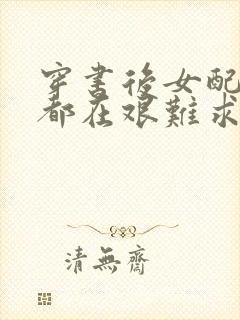 穿書後女配
都在艱難求
清無齋